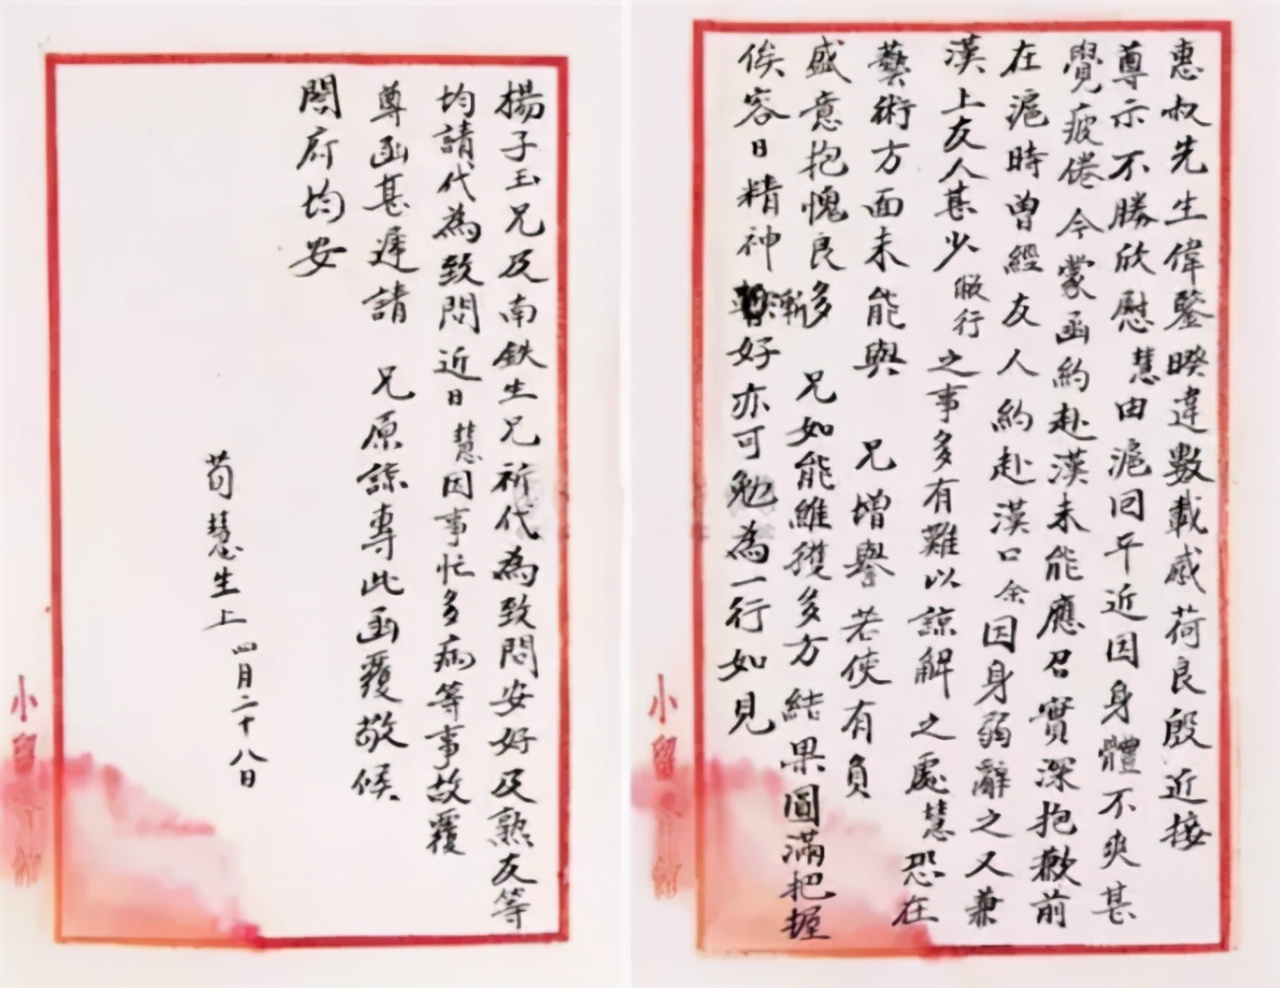 惠叔先生偉鑒暌違數載感荷良殷近接
尊示不勝欣慰慧由滬回平近因身體不爽甚
覺疲倦今蒙函約赴漢未能應召實深抱歉前
在滬時曾經友人約赴漢口余因身弱辭之又兼
漢上友人甚少 行之事多有難以諒解之處慧恐在
藝術方面未能與 兄增譽若使有負
盛意抱愧良多 兄如能維穫多方結果圓滿把握
俟容日精神漸好亦可勉為一行如見
揚子玉兄及南鉄生兄祈代為致問安好及熟友等
均請代為致問近日慧因事忙多病等事故覆
尊函甚遲請 兄原諒專此函覆敬候
閤府均安
荀慧生上 四月二十八日
小留
小留